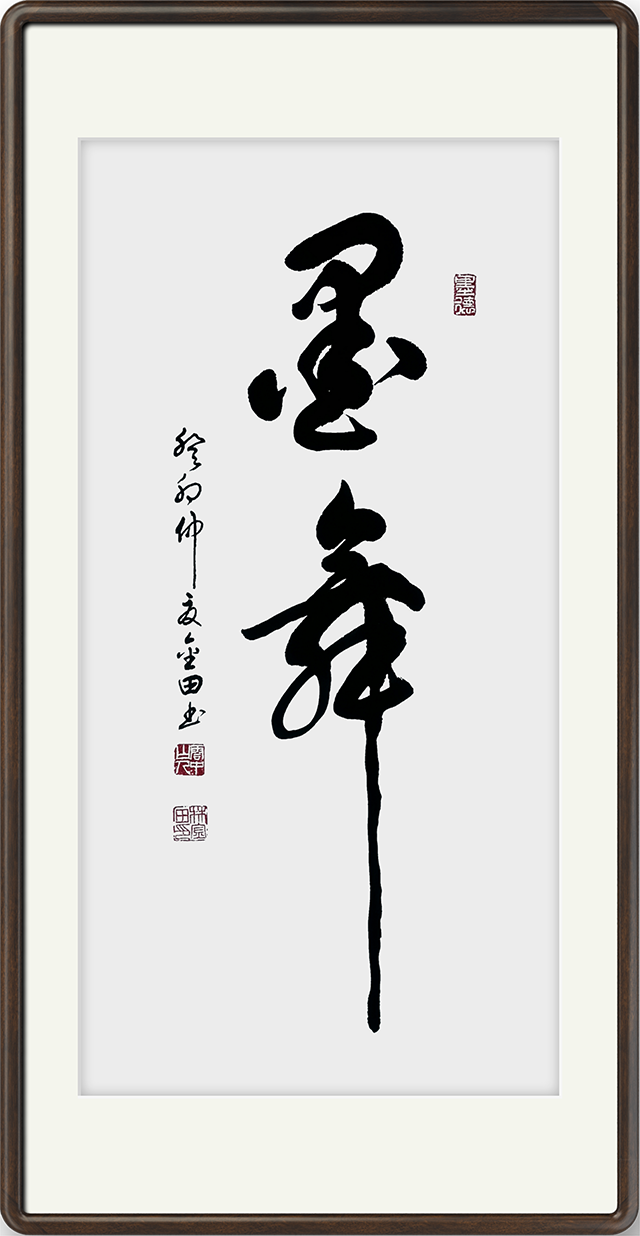 墨舞
癸卯仲夏金田书